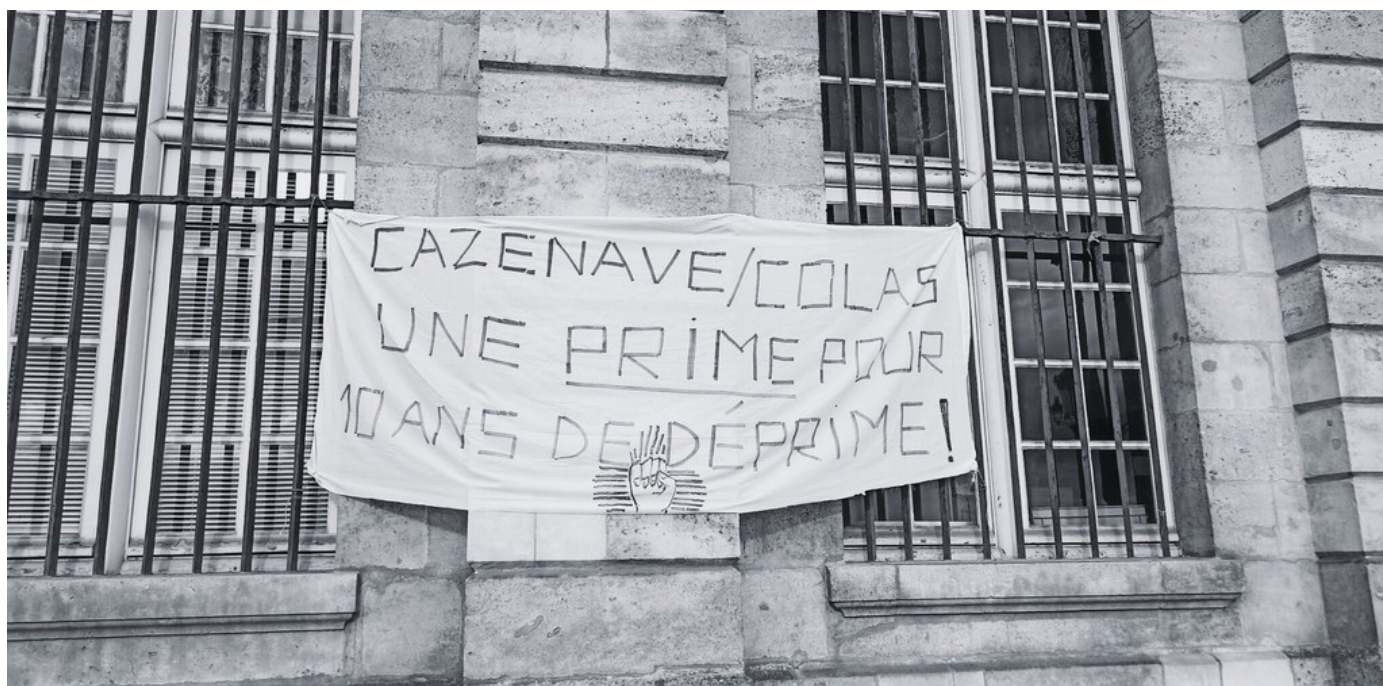 CAZENAVE/COLAS
UNE PRiME POUR
10 ANS DE DÉPRiME!